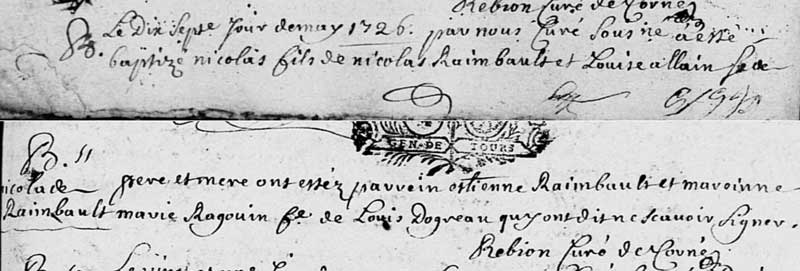 Rebion Curé de Corné
Le dix Sept Jour de may 1726. par nous Curé Sousne a esté
B. baptize nicolas fils de nicolas Raimbault et Louise allain Ses
GEN. DE TOURS
B. 11
nicolas de pere et mere ont estéz parrein estienne Raimbault et maroinne
Raimbault marie Ragouin fe. de Louis Dogreau quy ont dit ne scavoir signer.
Rebion Curé de Corné